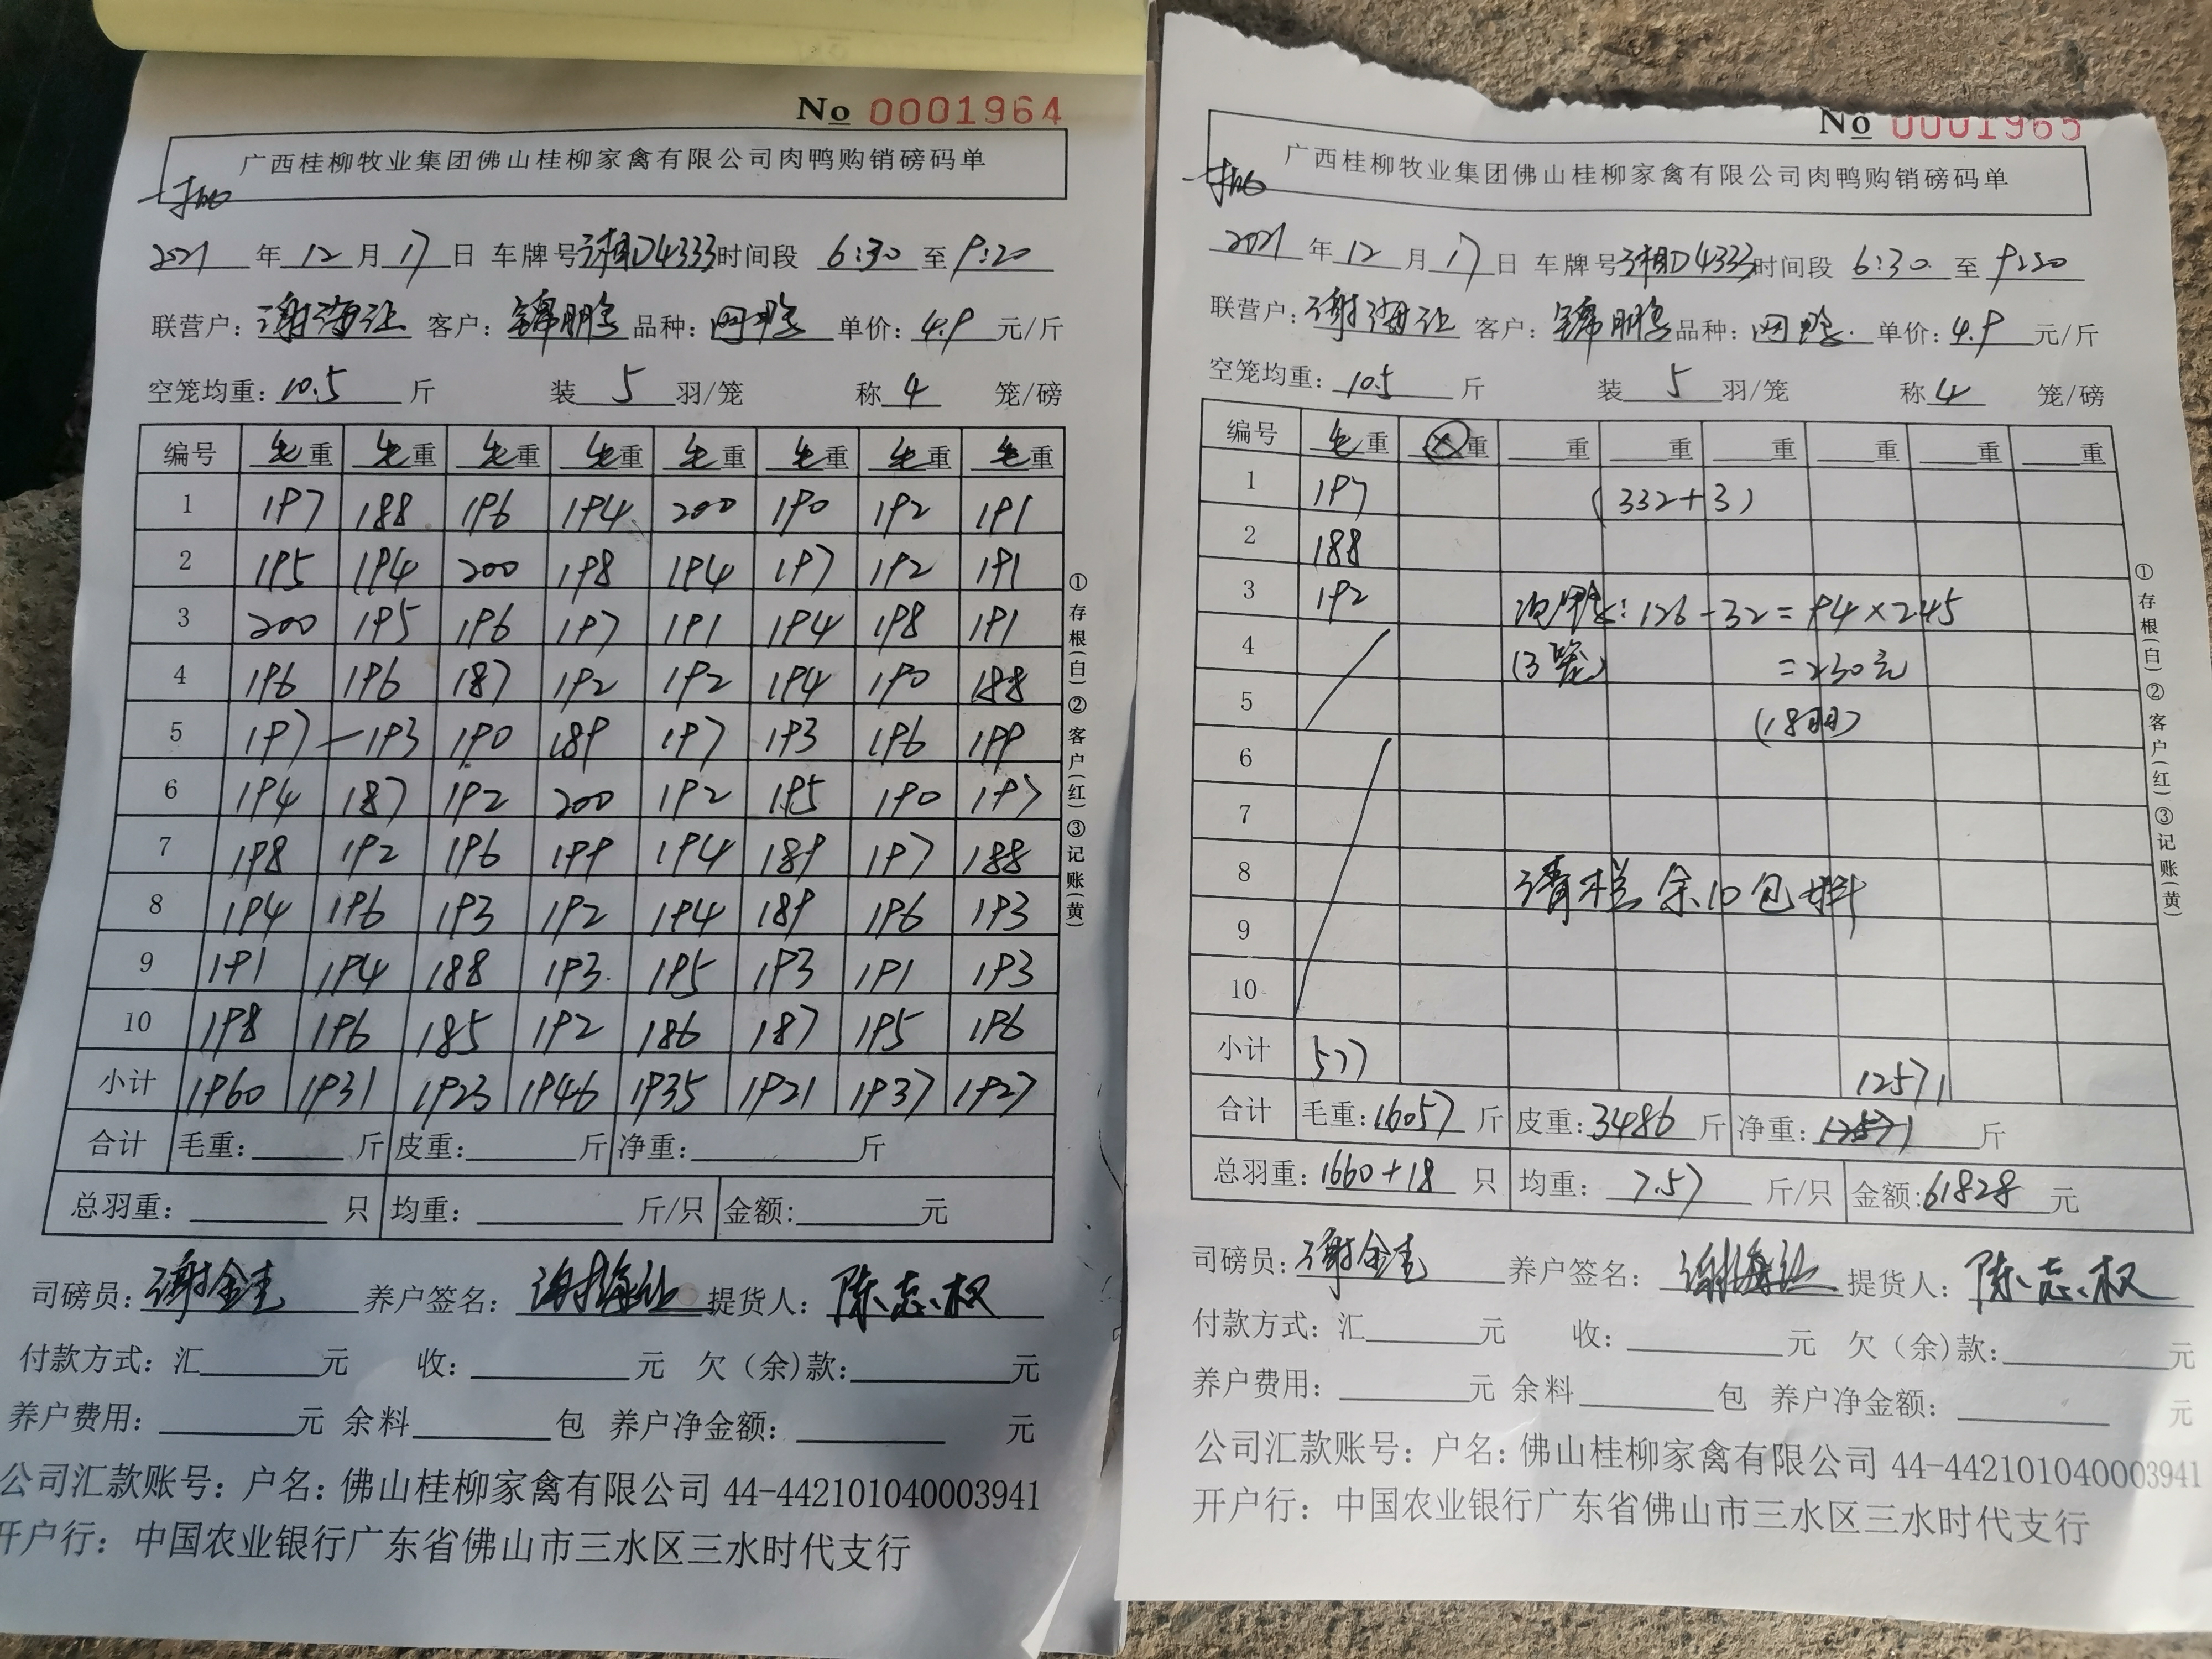 No 0001964
广西桂柳牧业集团佛山桂柳家禽有限公司肉鸭购销磅码单
2021 年 12 月 17 日 车牌号 湘D4333 时间段 6:30 至 9:20
联营户: 谢海让 客户: 锦鹏 品种: 网鸭 单价: 4.9 元/斤
空笼均重: 10.5 斤 装 5 羽/笼 称 4 笼/磅
编号 毛重 毛重 毛重 毛重 毛重 毛重 毛重 毛重
1 197 188 196 194 200 190 192 191
2 195 194 200 198 194 197 192 191
3 200 195 196 197 191 194 198 191
4 196 196 187 192 192 194 190 188
5 197 193 190 189 197 193 196 199
6 194 187 192 200 192 195 190 197
7 198 192 196 199 194 189 197 188
8 194 196 193 192 194 189 196 193
9 191 194 188 193 195 193 191 193
10 198 196 185 192 186 187 195 196
小计 1960 1931 1923 1946 1935 1921 1937 1927
合计 毛重: 斤 皮重: 斤 净重: 斤
总羽重: 只 均重: 斤/只 金额: 元
司磅员: 谢金 养户签名: 谢海让 提货人: 陈志权
付款方式: 汇 元 收: 元 欠(余)款: 元
养户费用: 元 余料 包 养户净金额: 元
公司汇款账号: 户名: 佛山桂柳家禽有限公司 44-442101040003941
开户行: 中国农业银行广东省佛山市三水区三水时代支行
①存根(白)②客户(红)③记账(黄)
No 0001965
广西桂柳牧业集团佛山桂柳家禽有限公司肉鸭购销磅码单
2021 年 12 月 17 日 车牌号 湘D4333 时间段 6:30 至 9:20
联营户: 谢海让 客户: 锦鹏 品种: 网鸭 单价: 4.9 元/斤
空笼均重: 10.5 斤 装 5 羽/笼 称 4 笼/磅
编号 毛重 重 重 重 重 重 重 重
1 197 (332+3)
2 188
3 192 126-32=94×2.45
4 (3笼) =230元
5 (18羽)
6
7
8 清栏余10包料
9
10
小计 577 12571
合计 毛重: 16057 斤 皮重: 3486 斤 净重: 12571 斤
总羽重: 1660+18 只 均重: 7.57 斤/只 金额: 61828 元
司磅员: 谢金 养户签名: 谢海让 提货人: 陈志权
付款方式: 汇 元 收: 元 欠(余)款: 元
养户费用: 元 余料 包 养户净金额: 元
公司汇款账号: 户名: 佛山桂柳家禽有限公司 44-442101040003941
开户行: 中国农业银行广东省佛山市三水区三水时代支行
①存根(白)②客户(红)③记账(黄)